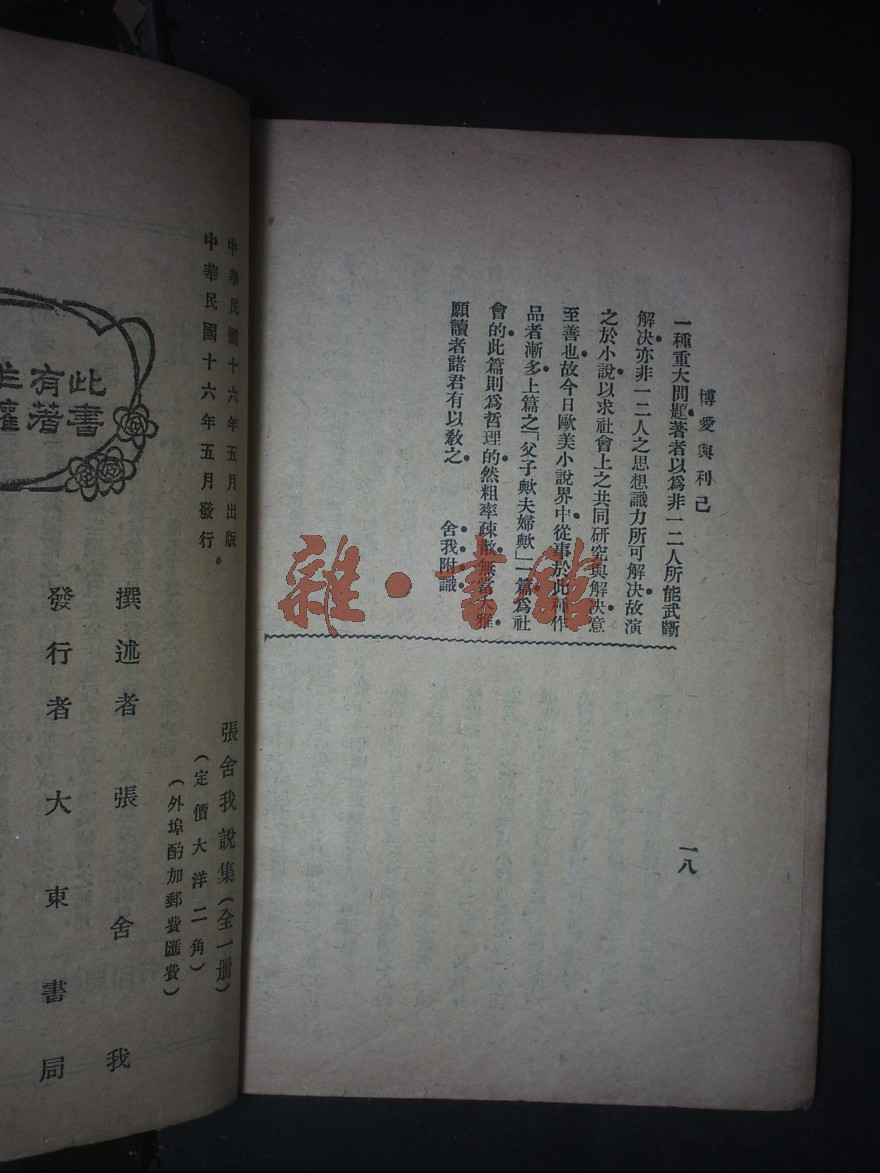 博愛與利己
一種重大問題著者以爲非一二人所能武斷
解决亦非一二人之思想識力所可解决故演
之於小說以求社會上之共同研究與解决意
至善也故今日歐美小說界中從事於此種作
品者漸多上篇之「父子歟夫婦歟」一篇爲社
會的此篇則爲哲理的然粗率疎散無當大雅
願讀者諸君有以敎之
舍我附識
一八
雜·書館
中華民國十六年五月出版
中華民國十六年五月發行
張舍我說集(全一册)
(定價大洋二角)
(外埠酌加郵費匯費)
撰述者張舍我
發行者大東書局
此書
有著